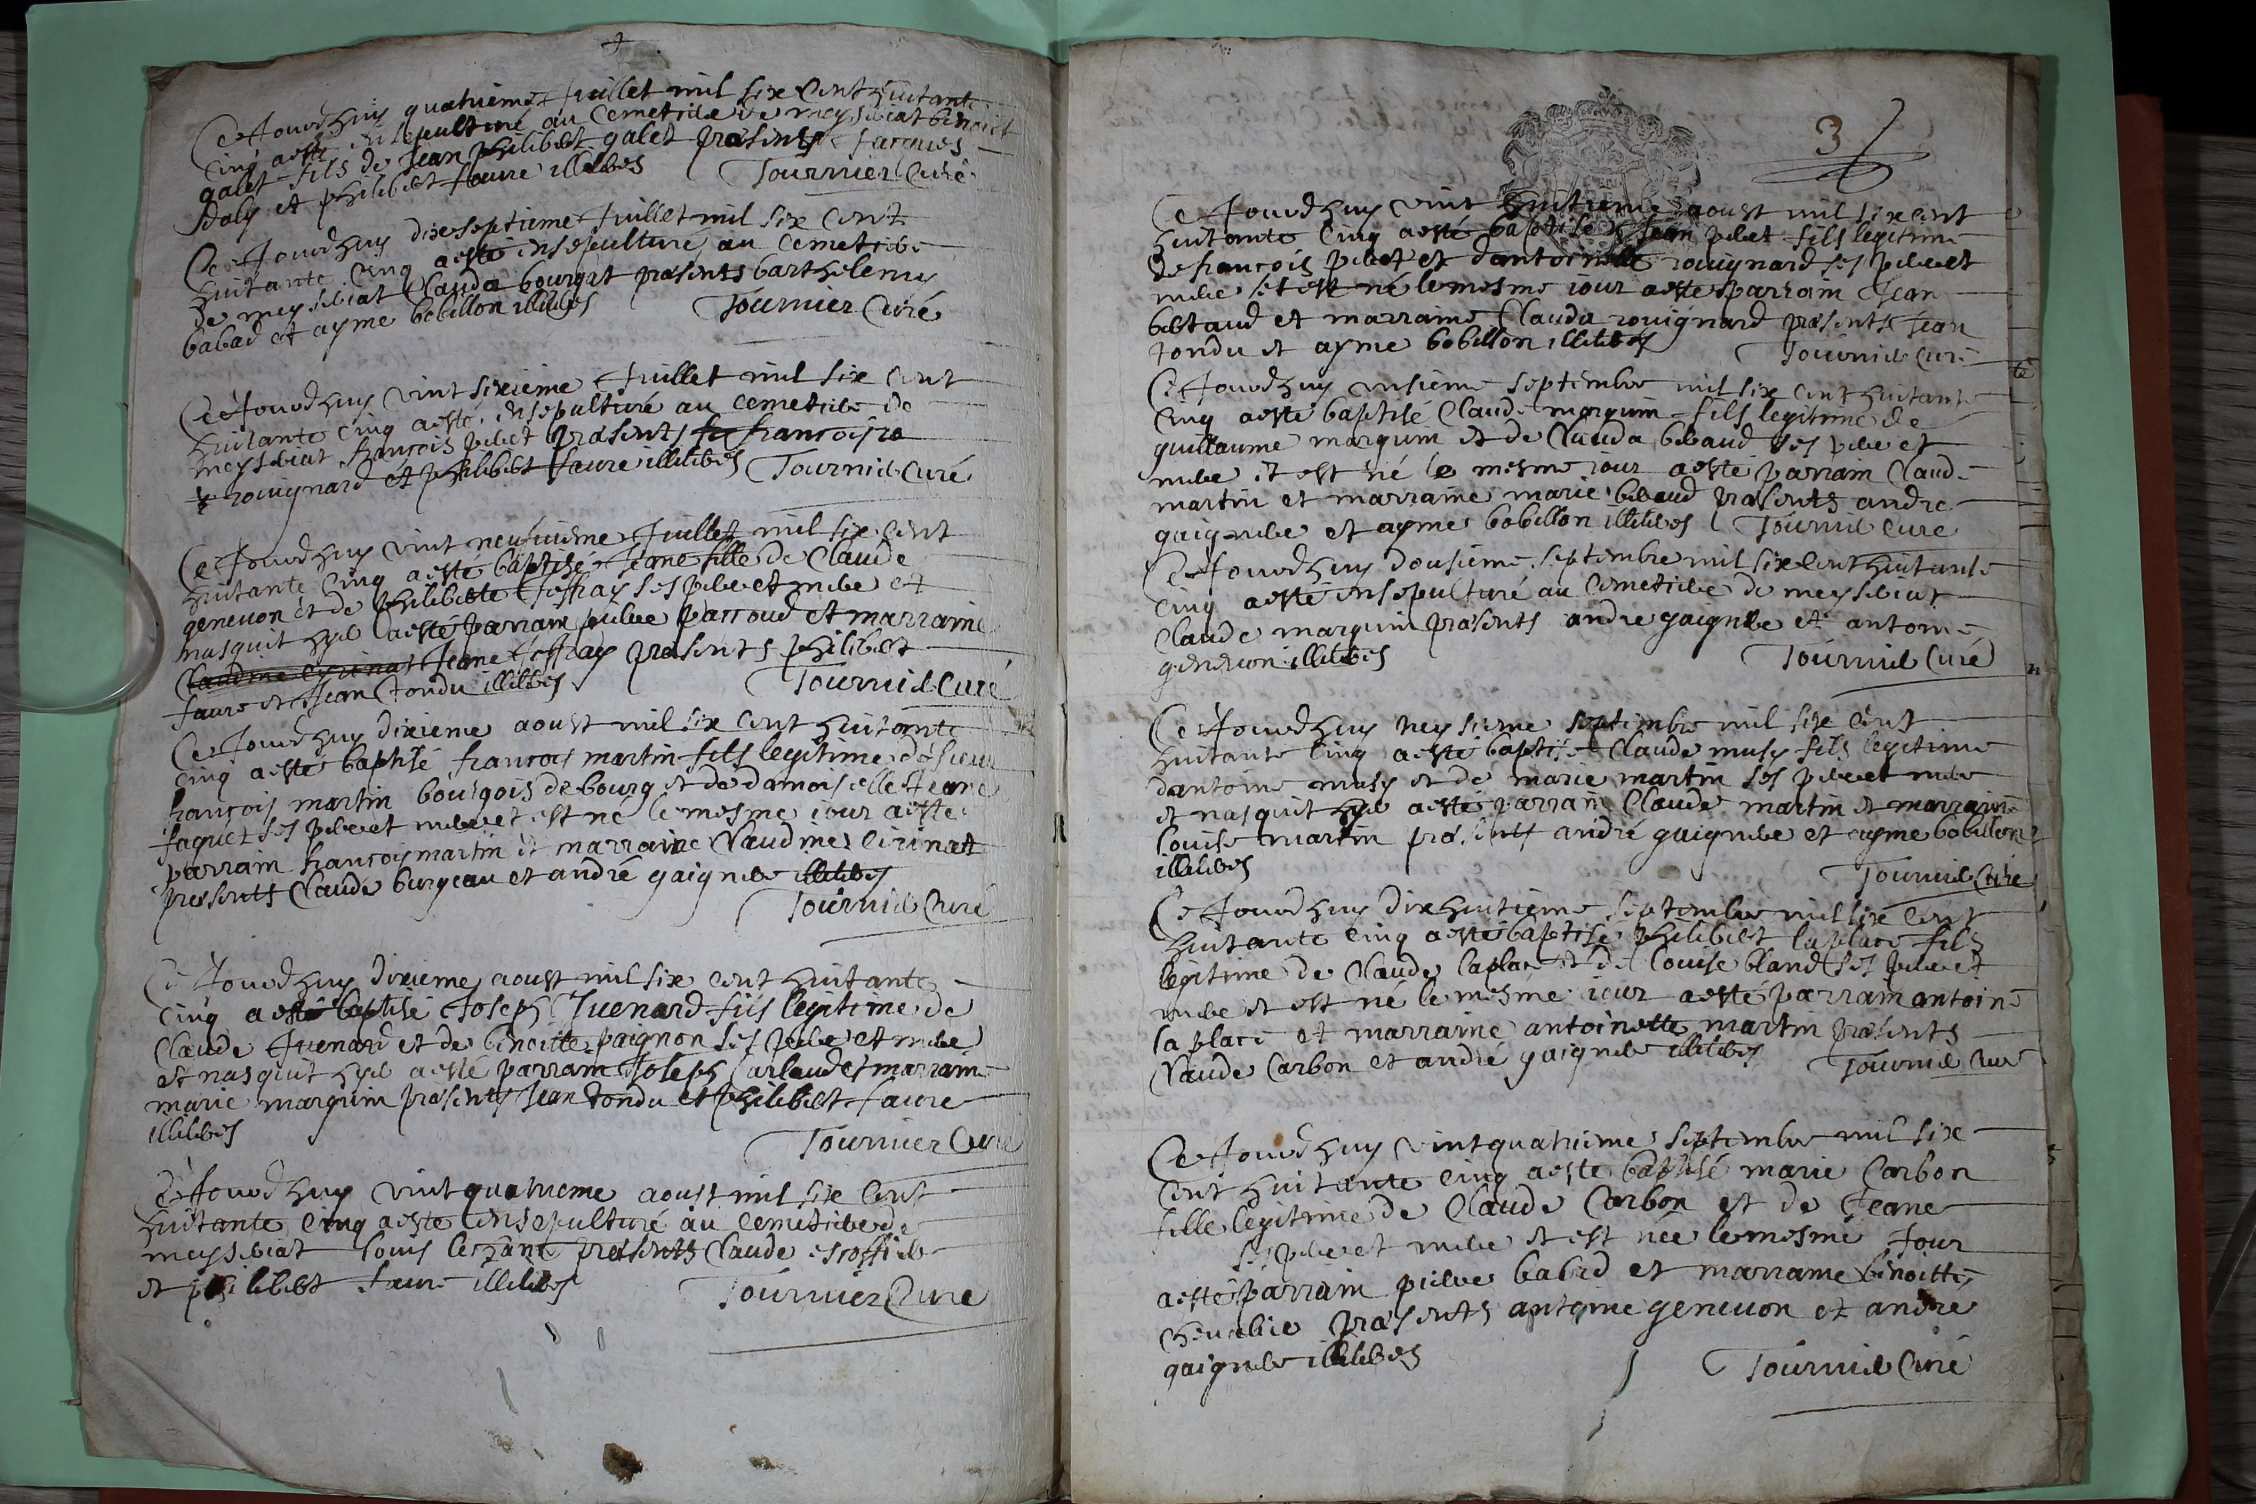 Ce Jourdhuy quatrieme Juillet mil six cent huitante
cinq a esté ensepulturé au cemetiere de meysseriat benoict
galet fils de Jean philibert galet présents Jacques
Joly et philibert faure illiteres Tournier Curé
Ce Jourdhuy dixseptieme Juillet mil six cent
huitante cinq a esté ensepulturé au cemetiere
de meysseriat Clauda bourgat présents barthelemy
babad et ayme bobillon illiteres Tournier Curé
Ce Jourdhuy vint sixieme Juillet mil six cent
huitante cinq a esté ensepulturé au cemetiere de
meysseriat françois peret présents françois
rouignard et philibert faure illiteres Tournier Curé
Ce Jourdhuy vint neufuieme Juillet mil six cent
huitante cinq a esté baptisé Jeane fille de Claude
geneuon et de philiberte Joffray ses pere et mere et
nasquit hyer a esté parrain pierre parroud et marraine
Jeane Joffray présents philibert
faure et Jean tondu illiteres Tournier Curé
Ce Jourdhuy dixieme aoust mil six cent huitante
cinq a esté baptisé françois martin fils legitime de sieur
françois martin bourgois de bourg et de damoiselle Jeane
faguet ses pere et mere et est né le mesme jour a esté
parrain françois martin et marraine Claudine
présents Claude burgeau et andré gaignere illiteres
Tournier Curé
Ce Jourdhuy dixieme aoust mil six cent huitante
cinq a esté baptisé Joseph Juenard fils legitime de
Claude Juenard et de benoitte paignon ses pere et mere
et nasquit hyer a esté parrain Joseph Carlaud et marraine
marie marguin présents Jean tondu et philibert faure
illiteres Tournier Curé
Ce Jourdhuy vint quatrieme aoust mil six cent
huitante cinq a esté ensepulturé au cemetiere de
meysseriat louis présents Claude escoffier
et philibert faure illiteres Tournier Curé
3
Ce Jourdhuy vint huitieme aoust mil six cent
huitante cinq a esté baptisé Jean peret fils legitime
de françois peret et dantoinette rouignard ses pere et
mere et est né le mesme iour a esté parrain Jean
bertaud et marraine Clauda rouignard présents Jean
tondu et ayme bobillon illiteres Tournier Curé
Ce Jourdhuy onsieme septembre mil six cent huitante
cinq a esté baptisé Claude marguin fils legitime de
guillaume marguin et de Clauda beraud ses pere et
mere et est né le mesme iour a esté parrain Claude
martin et marraine marie beraud présents andre
gaignere et ayme bobillon illiteres Tournier Curé
Ce Jourdhuy dousieme septembre mil six cent huitante
cinq a esté ensepulturé au cemetiere de meysseriat
Claude marguin présents andre gaignere et antoine
geneuon illiteres Tournier Curé
Ce Jourdhuy septembre mil six cent
huitante cinq a esté baptisé Claude musy fils legitime
dantoine musy et de marie martin ses pere et mere
et nasquit hyer a esté parrain Claude martin et marraine
louise martin présents andré gaignere et ayme bobillon
illiteres Tournier Curé
Ce Jourdhuy dixhuitieme septembre mil six cent
huitante cinq a esté baptisé philibert laplace fils
legitime de Claude laplace et de louise bland ses pere et
mere et est né le mesme iour a esté parrain antoine
la place et marraine antoinette martin présents
Claude Carbon et andré gaignere illiteres Tournier Curé
Ce Jourdhuy vint quatrieme septembre mil six
cent huitante cinq a esté baptisé marie Carbon
fille legitime de Claude Carbon et de Jeane
ses pere et mere et est née le mesme Jour
a esté parrain pierre babad et marraine benoitte
présents antoine geneuon et andre
gaignere illiteres Tournier Curé